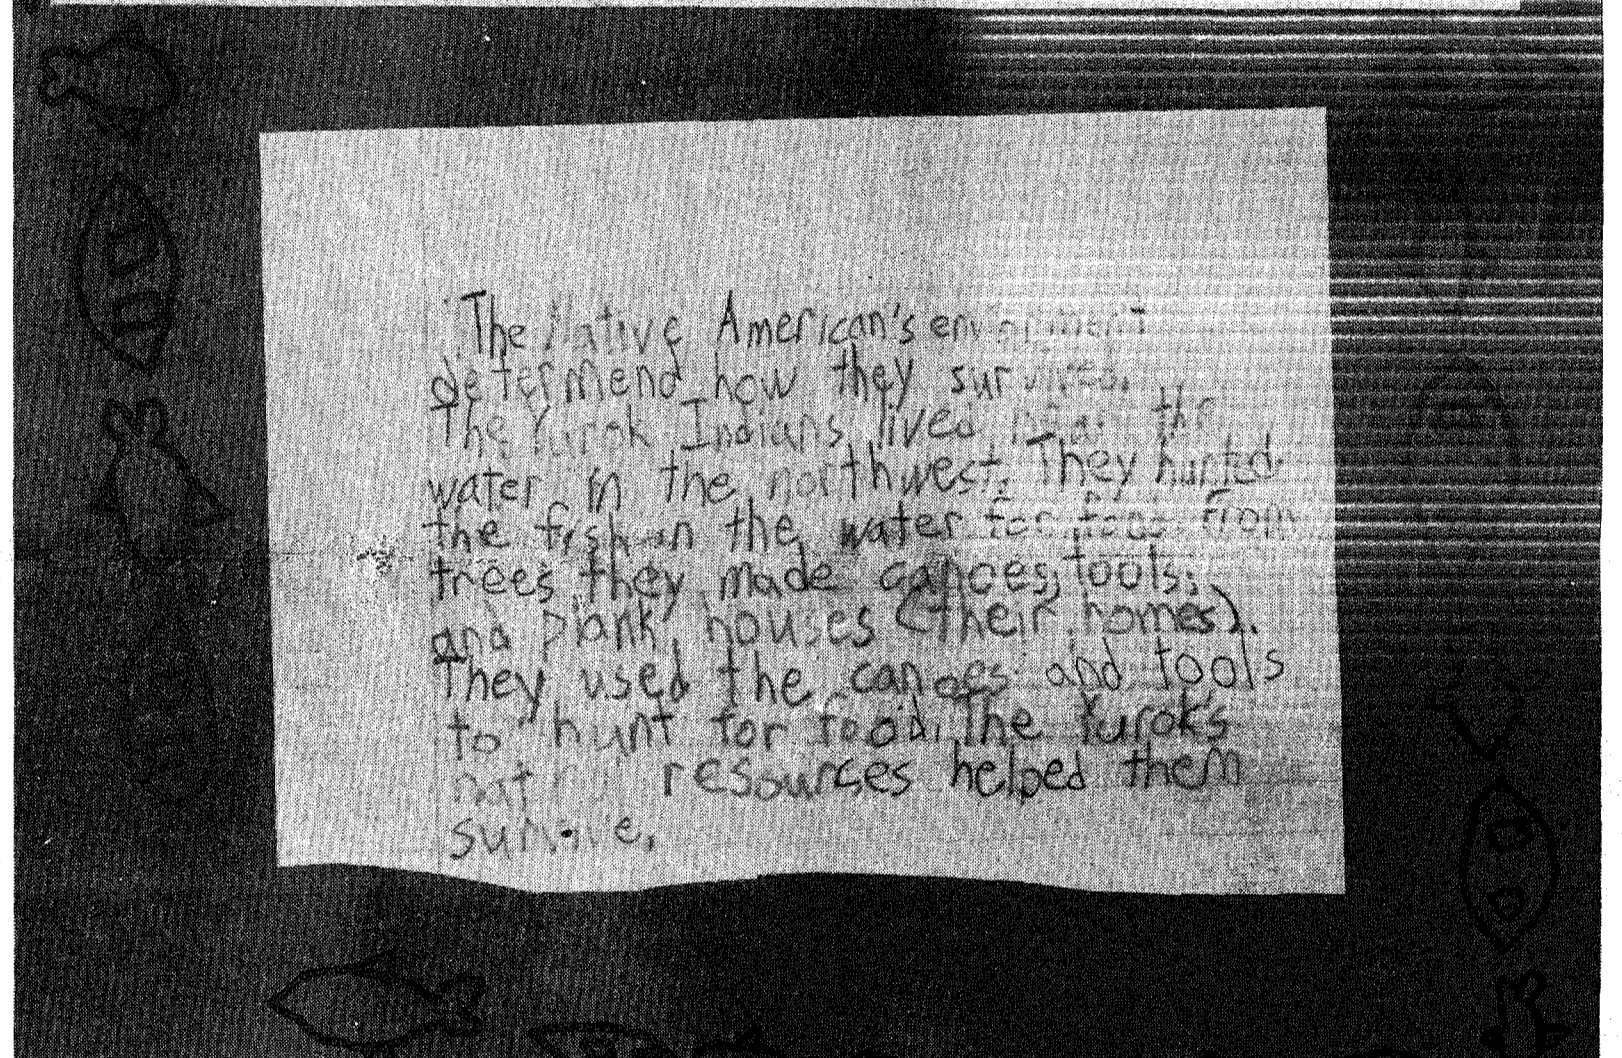 The Native American's envirnment
determend how they survived.
The Yurok Indians lived near the
water in the northwest. They hunted
the fish in the water for food. From
trees they made canoes, tools,
and plank houses (their homes).
They used the canoes and tools
to hunt for food. The Yurok's
resources helped them
survive.